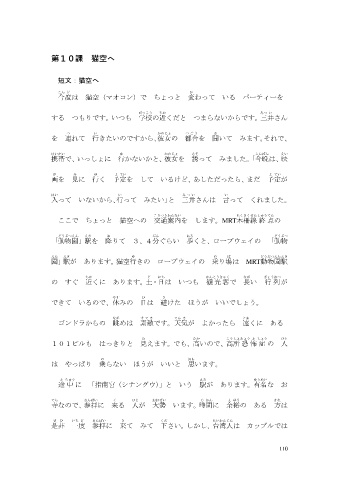 第１０課　猫空へ
短文　猫空へ
今度は　猫空（マオコン）で　ちょっと　変わって　いる　パーティーを
する　つもりです。いつも　学校の近くだと　つまらないからです。三井さん
を　連れて　行きたいのですから、彼女の　都合を　聞いて　みます。それで、
携帯で、いっしょに　行かないかと、彼女を　誘って　みました。「今晩は、映
画を　見に　行く　予定を　して　いるけど、あしただったら、まだ　予定が
入って　いないから、行って　みたい」と　三井さんは　言って　くれました。
ここで　ちょっと　猫空への　交通案内を　します。MRT木柵線　終点の
「動物園」駅を　降りて　３、４分ぐらい　歩くと、ロープウェイの　「動物
園」駅が　あります。猫空行きの　ロープウェイの　乗り場は　MRT動物園駅
の　すぐ　近くに　あります。土・日は　いつも　観光客で　長い　行列が
できて　いるので、休みの　日は　避けた　ほうが　いいでしょう。
ゴンドラからの　眺めは　素敵です。天気が　よかったら　遠くに　ある
１０１ビルも　はっきりと　見えます。でも、高いので、高所恐怖症の　人
は　やっぱり　乗らない　ほうが　いいと　思います。
途中に　「指南宮（シナングウ）」と　いう　駅が　あります。有名な　お
寺なので、参拝に　来る　人が　大勢　います。時間に　余裕の　ある　方は
是非　一度　参拝に　来て　みて　下さい。しかし、台湾人は　カップルでは
110